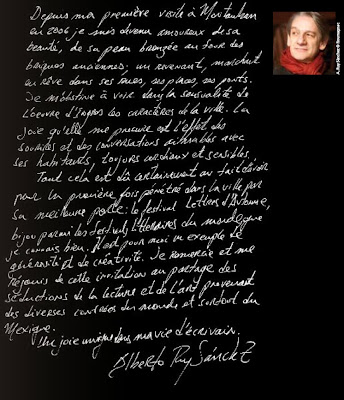 Depuis ma première visite à Montauban
en 2006 je suis devenu amoureux de sa
beauté, de sa peau bronzée autour des
briques anciennes: un revenant, marchant
en rêve dans ses rues, ses places, ses ponts.
Je m'obstine à voir dans la sensualité de
l'oeuvre d'Ingres les caractères de la ville. La
joie qu'elle me procure est l'effet des
sourires et des conversations admirables avec
ses habitants, toujours cordiaux et sensibles.
Tout cela est dû certainement au fait d'avoir
pour la première fois pénétré dans la ville par
sa meilleure porte: le festival Lettres d'Automne,
bijou parmi les festivals littéraires du monde que
je connais bien. Il est pour moi un exemple de
générosité et de créativité. Je remercie et me
réjouis de cette invitation au partage des
séductions de la lecture et de l'art provenant
des diverses contrées du monde et surtout du
Mexique.
Une joie unique dans ma vie d'écrivain.
Alberto Ruy Sánchez